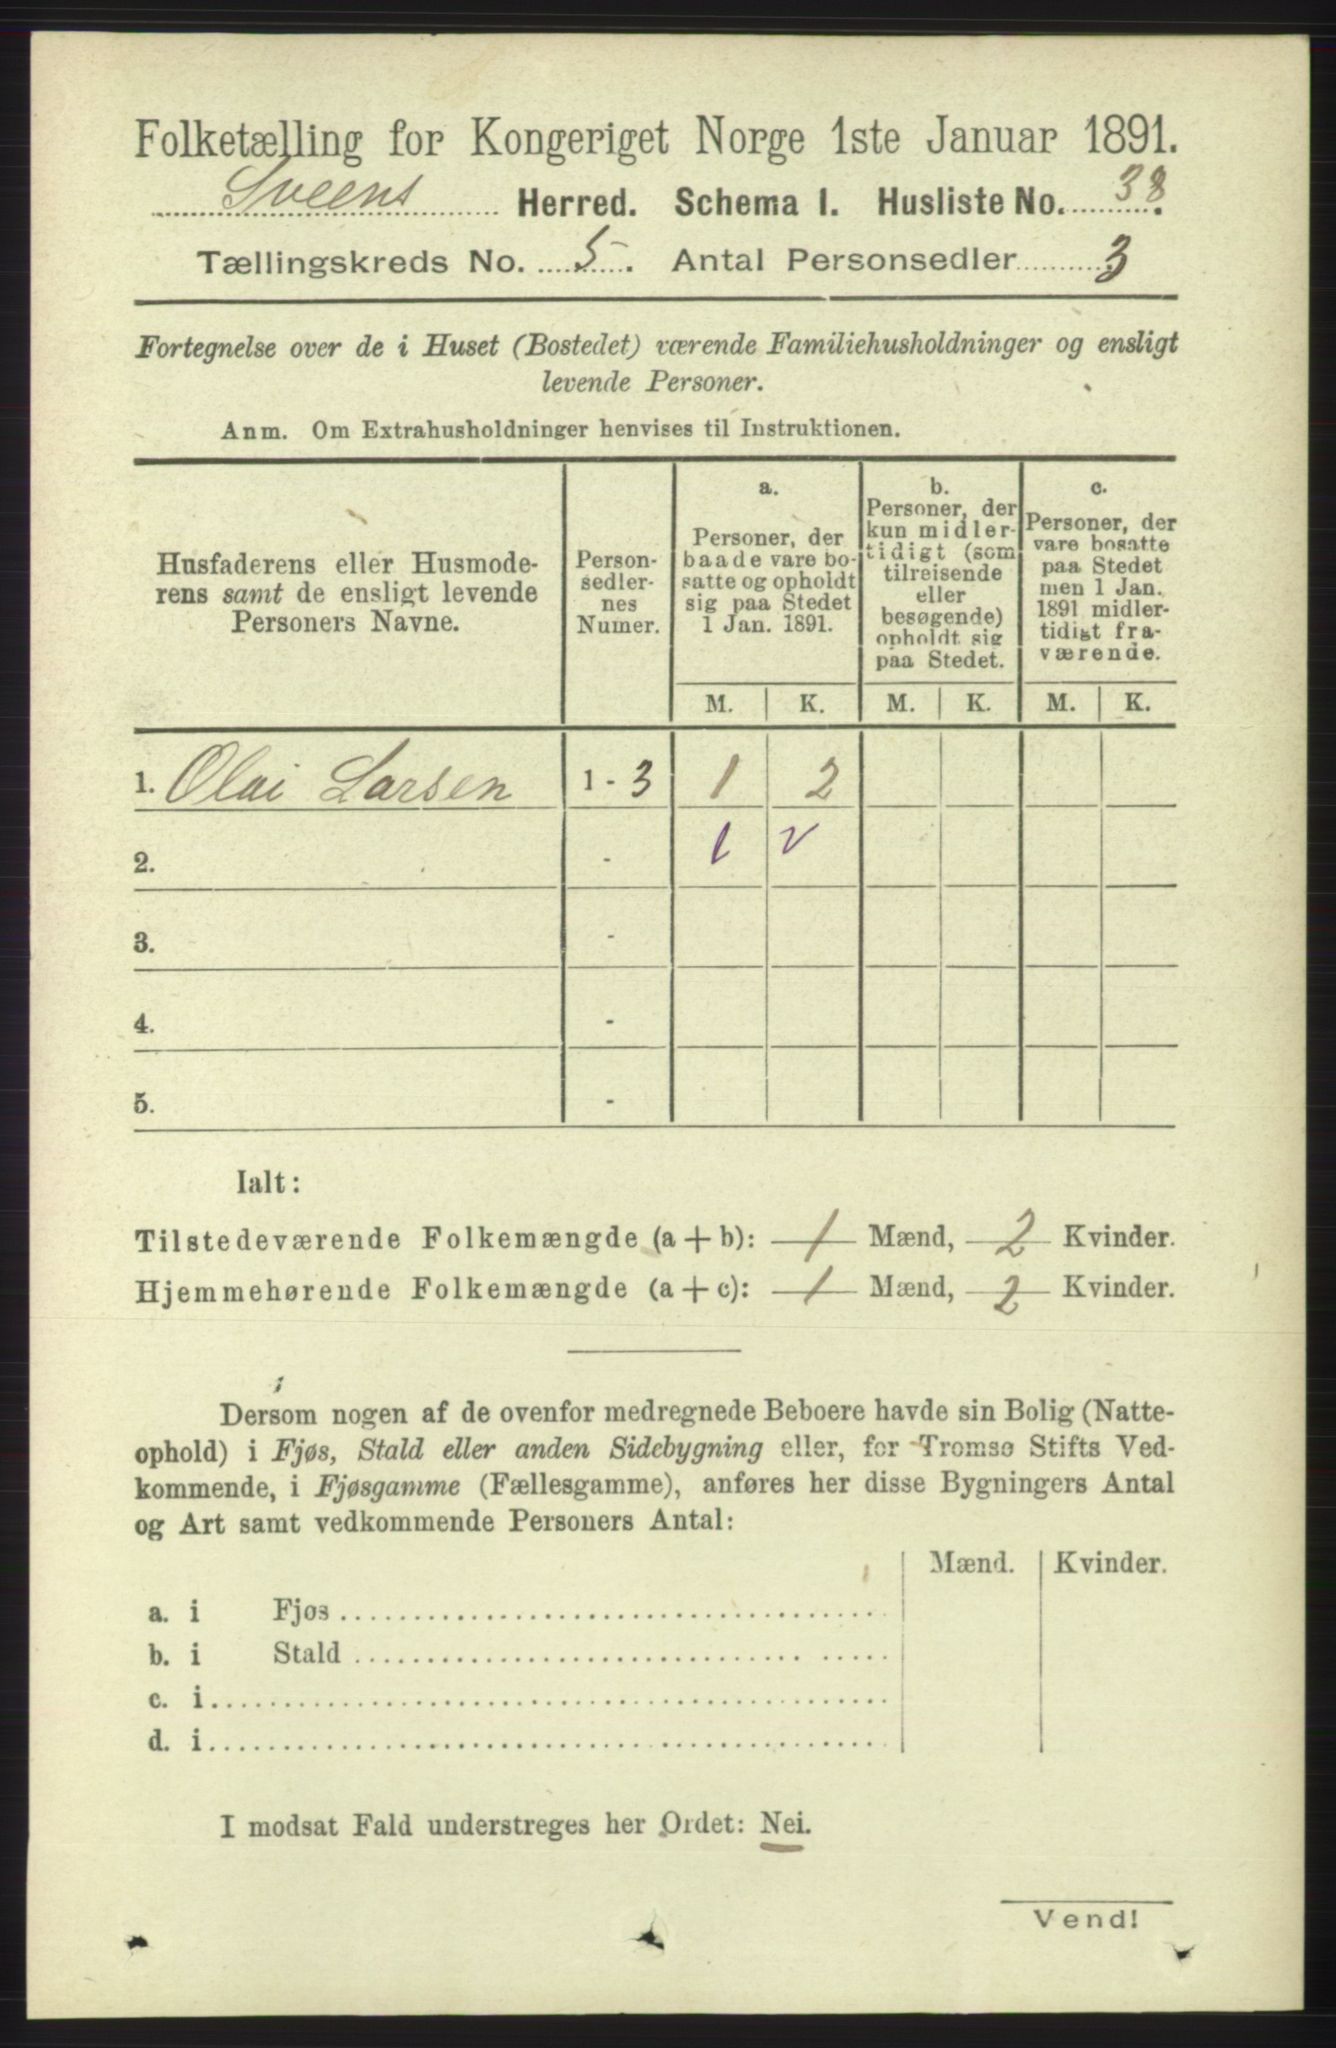 Folketælling for Kongeriget Norge 1ste Januar 1891.
Sveens Herred. Schema I. Husliste No. 38.
Tællingskreds No. 5. Antal Personsedler 3
Fortegnelse over de i Huset (Bostedet) værende Familiehusholdninger og ensligt
levende Personer.
Anm. Om Extrahusholdninger henvises til Instruktionen.
Husfaderens eller Husmode-
rens samt de ensligt levende
Personers Navne.
Person-
sedler-
nes
Numer.
a.
Personer, der
baade vare bo-
satte og opholdt
sig paa Stedet
1 Jan. 1891.
b.
Personer, der
kun midler-
tidigt (som
tilreisende
eller
besøgende)
opholdt sig
paa Stedet.
c.
Personer, der
vare bosatte
paa Stedet
men 1 Jan.
1891 midler-
tidigt fra-
værende.
M. K. M. K. M. K.
1. Olai Larsen 1 - 3 1 2
2. - 1 2
3. -
4. -
5. -
Ialt:
Tilstedeværende Folkemængde (a + b): 1 Mænd, 2 Kvinder.
Hjemmehørende Folkemængde (a + c): 1 Mænd, 2 Kvinder.
Dersom nogen af de ovenfor medregnede Beboere havde sin Bolig (Natte-
ophold) i Fjøs, Stald eller anden Sidebygning eller, for Tromsø Stifts Ved-
kommende, i Fjøsgamme (Fællesgamme), anføres her disse Bygningers Antal
og Art samt vedkommende Personers Antal:
Mænd. Kvinder.
a. i Fjøs
b. i Stald
c. i
d. i
I modsat Fald understreges her Ordet: Nei.
Vend!